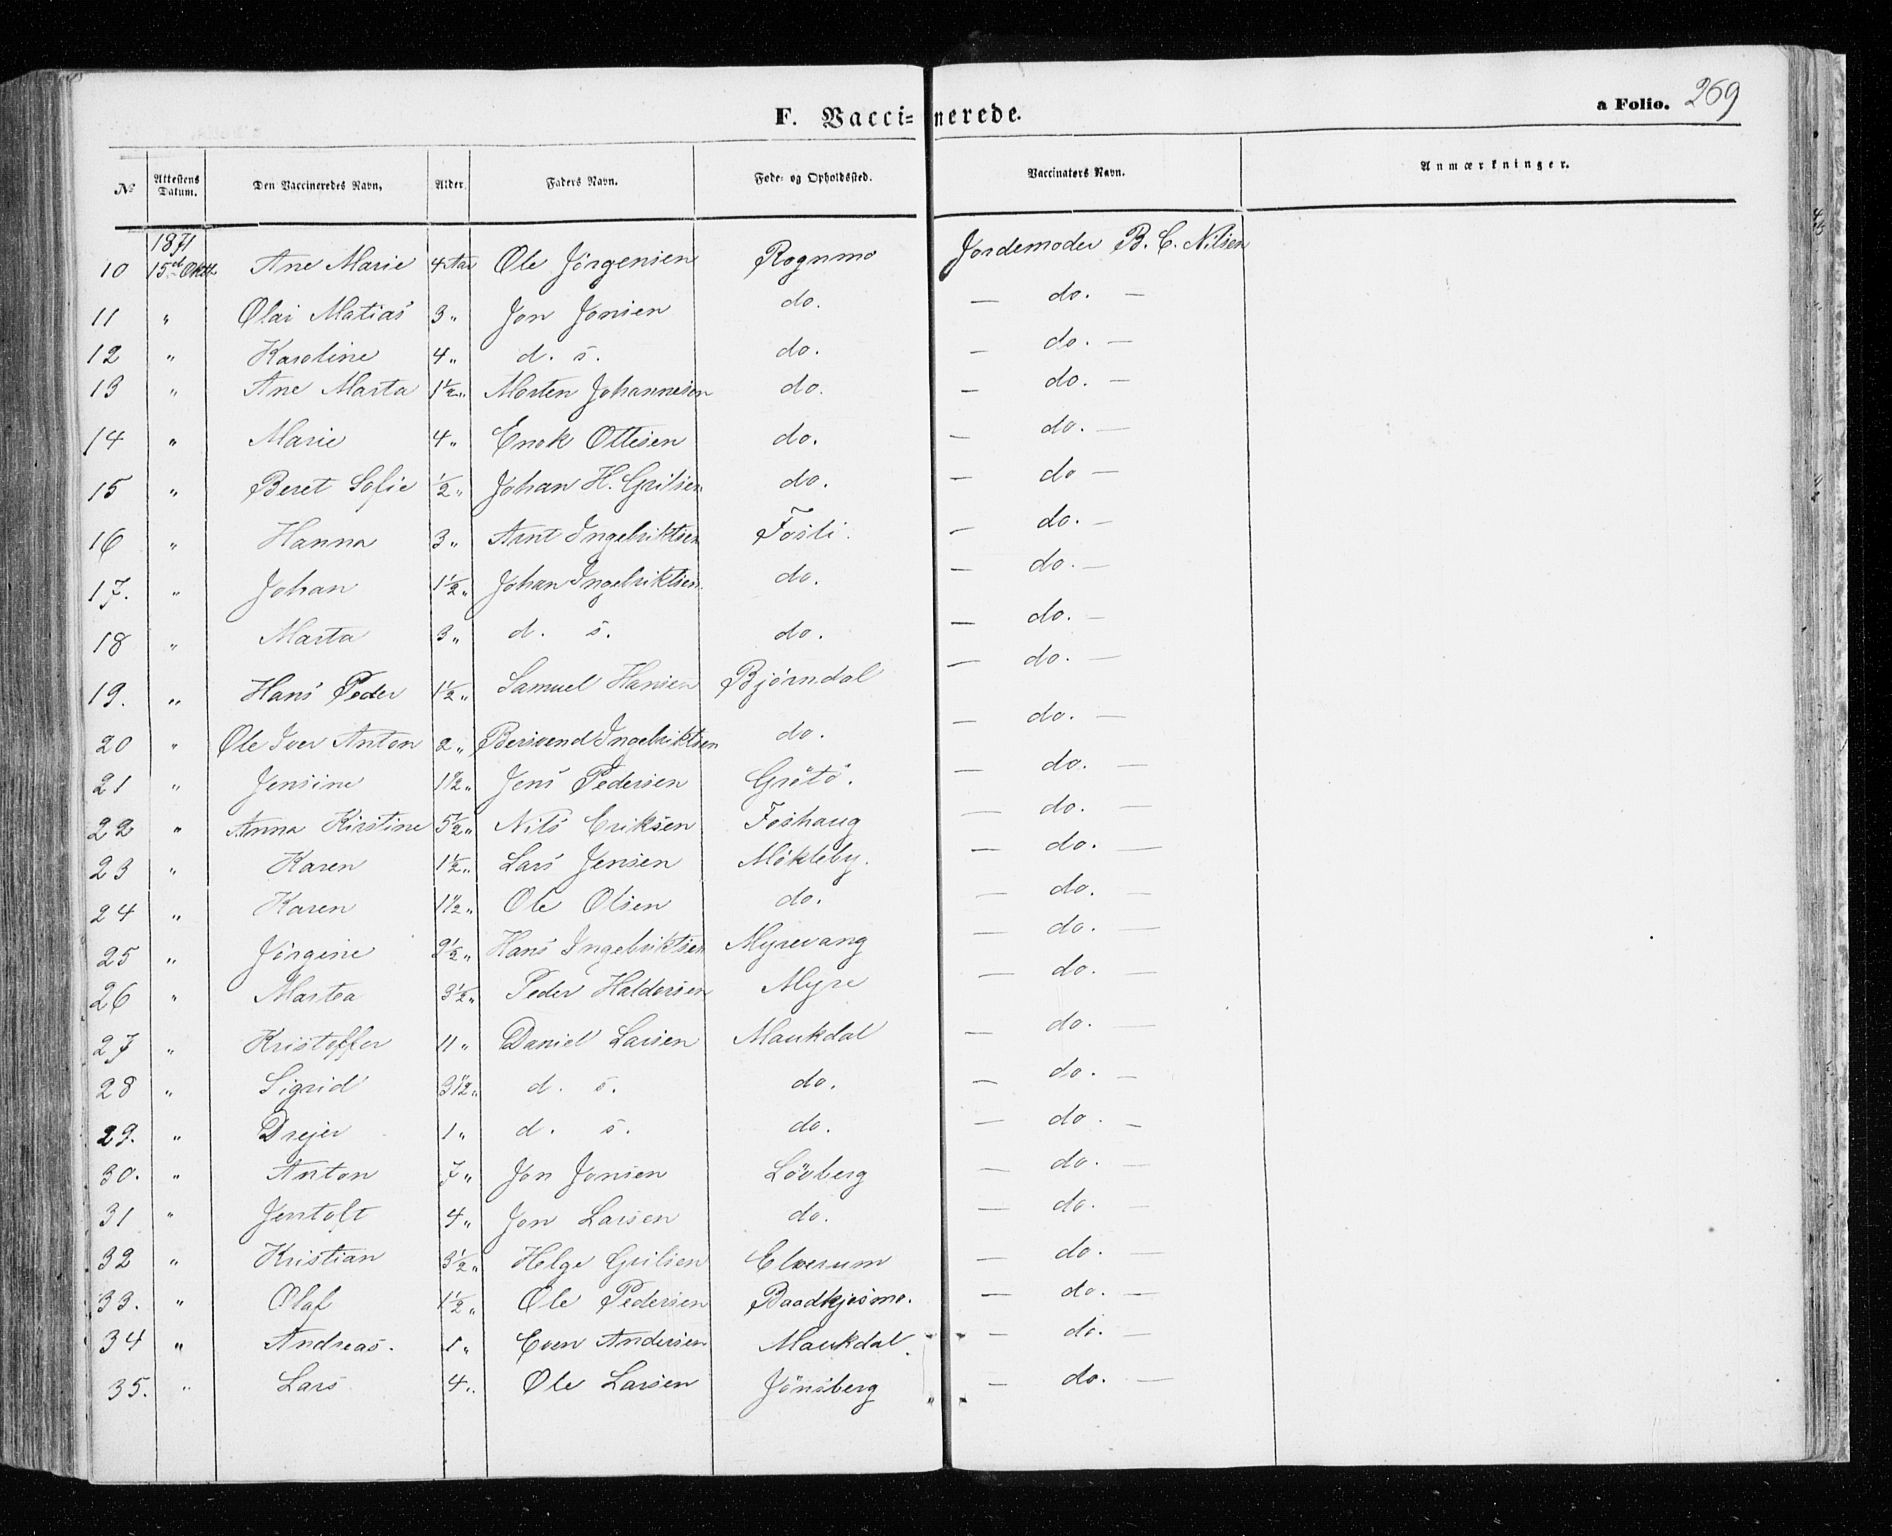 F. Vaccinerede.
a Folio. 269
No Attestens Datum. Den Vaccineredes Navn. Alder. Faders Navn. Føde- og Opholdssted. Vaccinators Navn. Anmærkninger.
1871
10 15de Oktb. Ane Marie 4 Aar Ole Jörgensen Rognmo Jordemoder B. C. Nilsen
11 " Olai Matias 3 " Jon Jonsen do. — do. —
12 " Karoline 4 " d. s. do. — do. —
13 " Ane Marta 1 1/2 " Morten Johannesen do. — do. —
14 " Marie 4 " Enok Ottesen do. — do. —
15 " Beret Sofie 1/2 " Johan H. Grilsen do. — do —
16 " Hanna 3 " Arnt Ingebriktsen Fosli. — do. —
17. " Johan 1 1/2 " Johan Ingebriktsen do. — do. —
18 " Marta 3 " d. s. do. — do. —
19. " Hans Peder 1 1/2 " Samuel Hansen Bjørndal — do. —
20 " Ole Iver Anton 2 " Bersvend Ingebriktsen do. — do. —
21 " Jensine 1 1/2 " Jens Pedersen Grötö. — do. —
22 " Anna Kirstine 5 1/2 " Nils Eriksen Foshaug — do. —
23 " Karen 1 1/2 " Lars Jensen Mökleby. — do. —
24 " Karen 1 1/2 " Ole Olsen do. — do. —
25 " Jörgine 2 1/2 " Hans Ingebriktsen Myrevang — do. —
26 " Martea 3 1/2 " Peder Haldorsen Myre — do. —
27 " Kristoffer 11 " Daniel Larsen Maukdal — do. —
28 " Sigrid 3 1/2 " d. s. do. — do. —
29. " Drejer 1 " d. s. do. — do. —
30. " Anton 7 " Jon Jonsen Lövberg — do. —
31 " Jentoft 4 " Jon Larsen do. — do. —
32 " Kristian 3 1/2 " Helge Grilsen Elverum — do. —
33. " Olaf 1 1/2 " Ole Pedersen Baadkjosmo. — do. —
34 " Andreas. 1 " Even Andersen Maukdal. — do. —
35. " Lars 4 " Ole Larsen Jönsberg — do. —